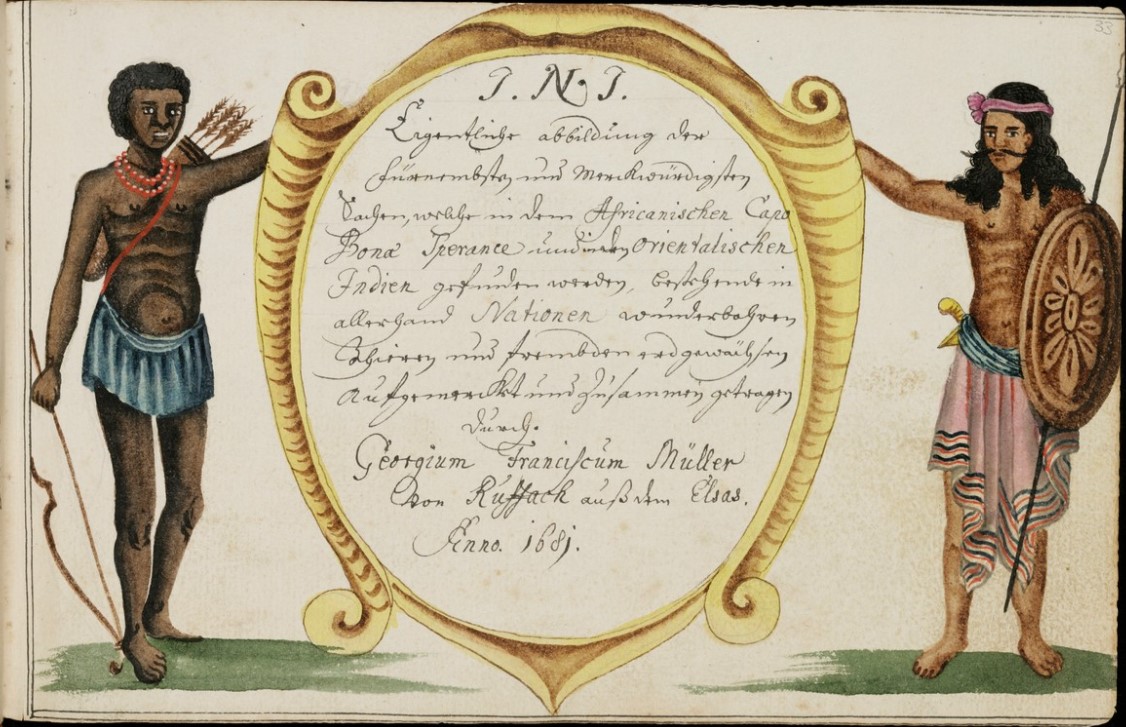 33
J. N. J.
Eigentliche abbildung der
fürnembsten und Merckwürdigsten
Sachen, welche in dem Africanischen Capo
Bonæ Sperance und in den Orientalischen
Indien gefunden werden, bestehende in
allerhand Nationen wunderbahren
thieren und frembden erdgewächsen
Aufgemerckt und zusammen getragen
durch.
Georgium Franciscum Müller
von Ruffach auß dem Elsas.
Anno. 1681.